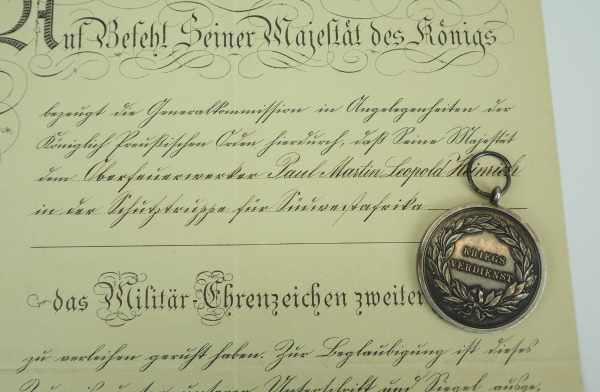 Auf Befehl Seiner Majestät des Königs
bezeugt die Generalkommission in Angelegenheiten der
Königlich Preußischen Orden hierdurch, daß Seine Majestät
dem Oberfeuerwerker Paul Martin Leopold Heinrich
in der Schutztruppe für Südwestafrika
das Militär-Ehrenzeichen zweiter
zu verleihen geruht haben. Zur Beglaubigung ist dieses
Unterschrift und Siegel ausge-
KRIEGS
VERDIENST